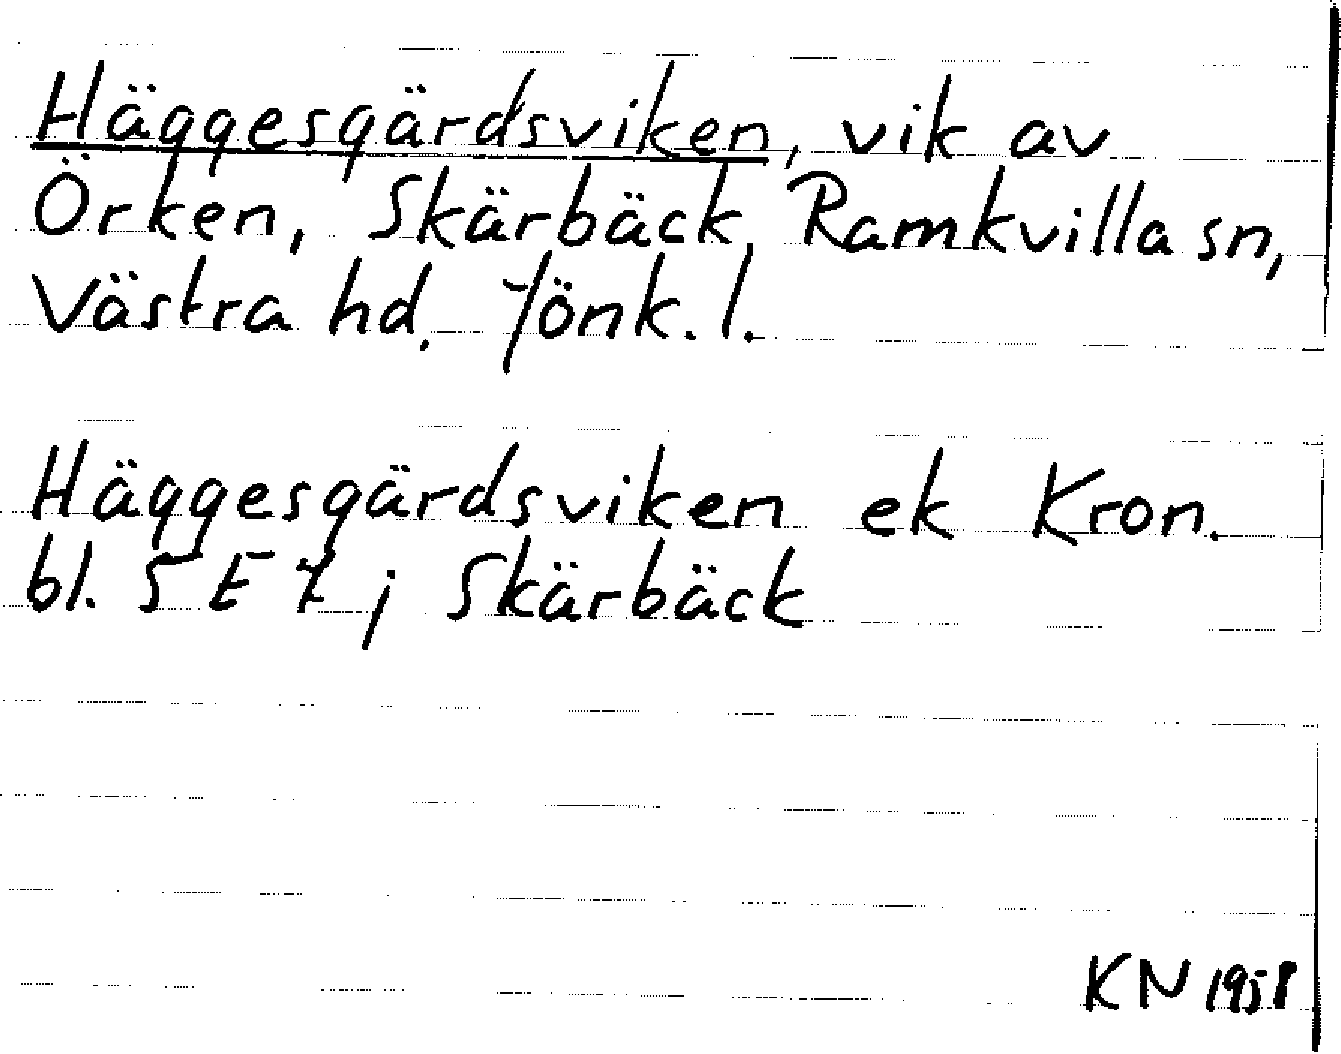 Häggesgärdsviken, vik av
Örken, Skärbäck, Ramkvilla sn,
Västra hd, Jönk. l.
Häggesgärdsviken ek Kron.
bl. 5 E Ä; Skärbäck
KN 1958